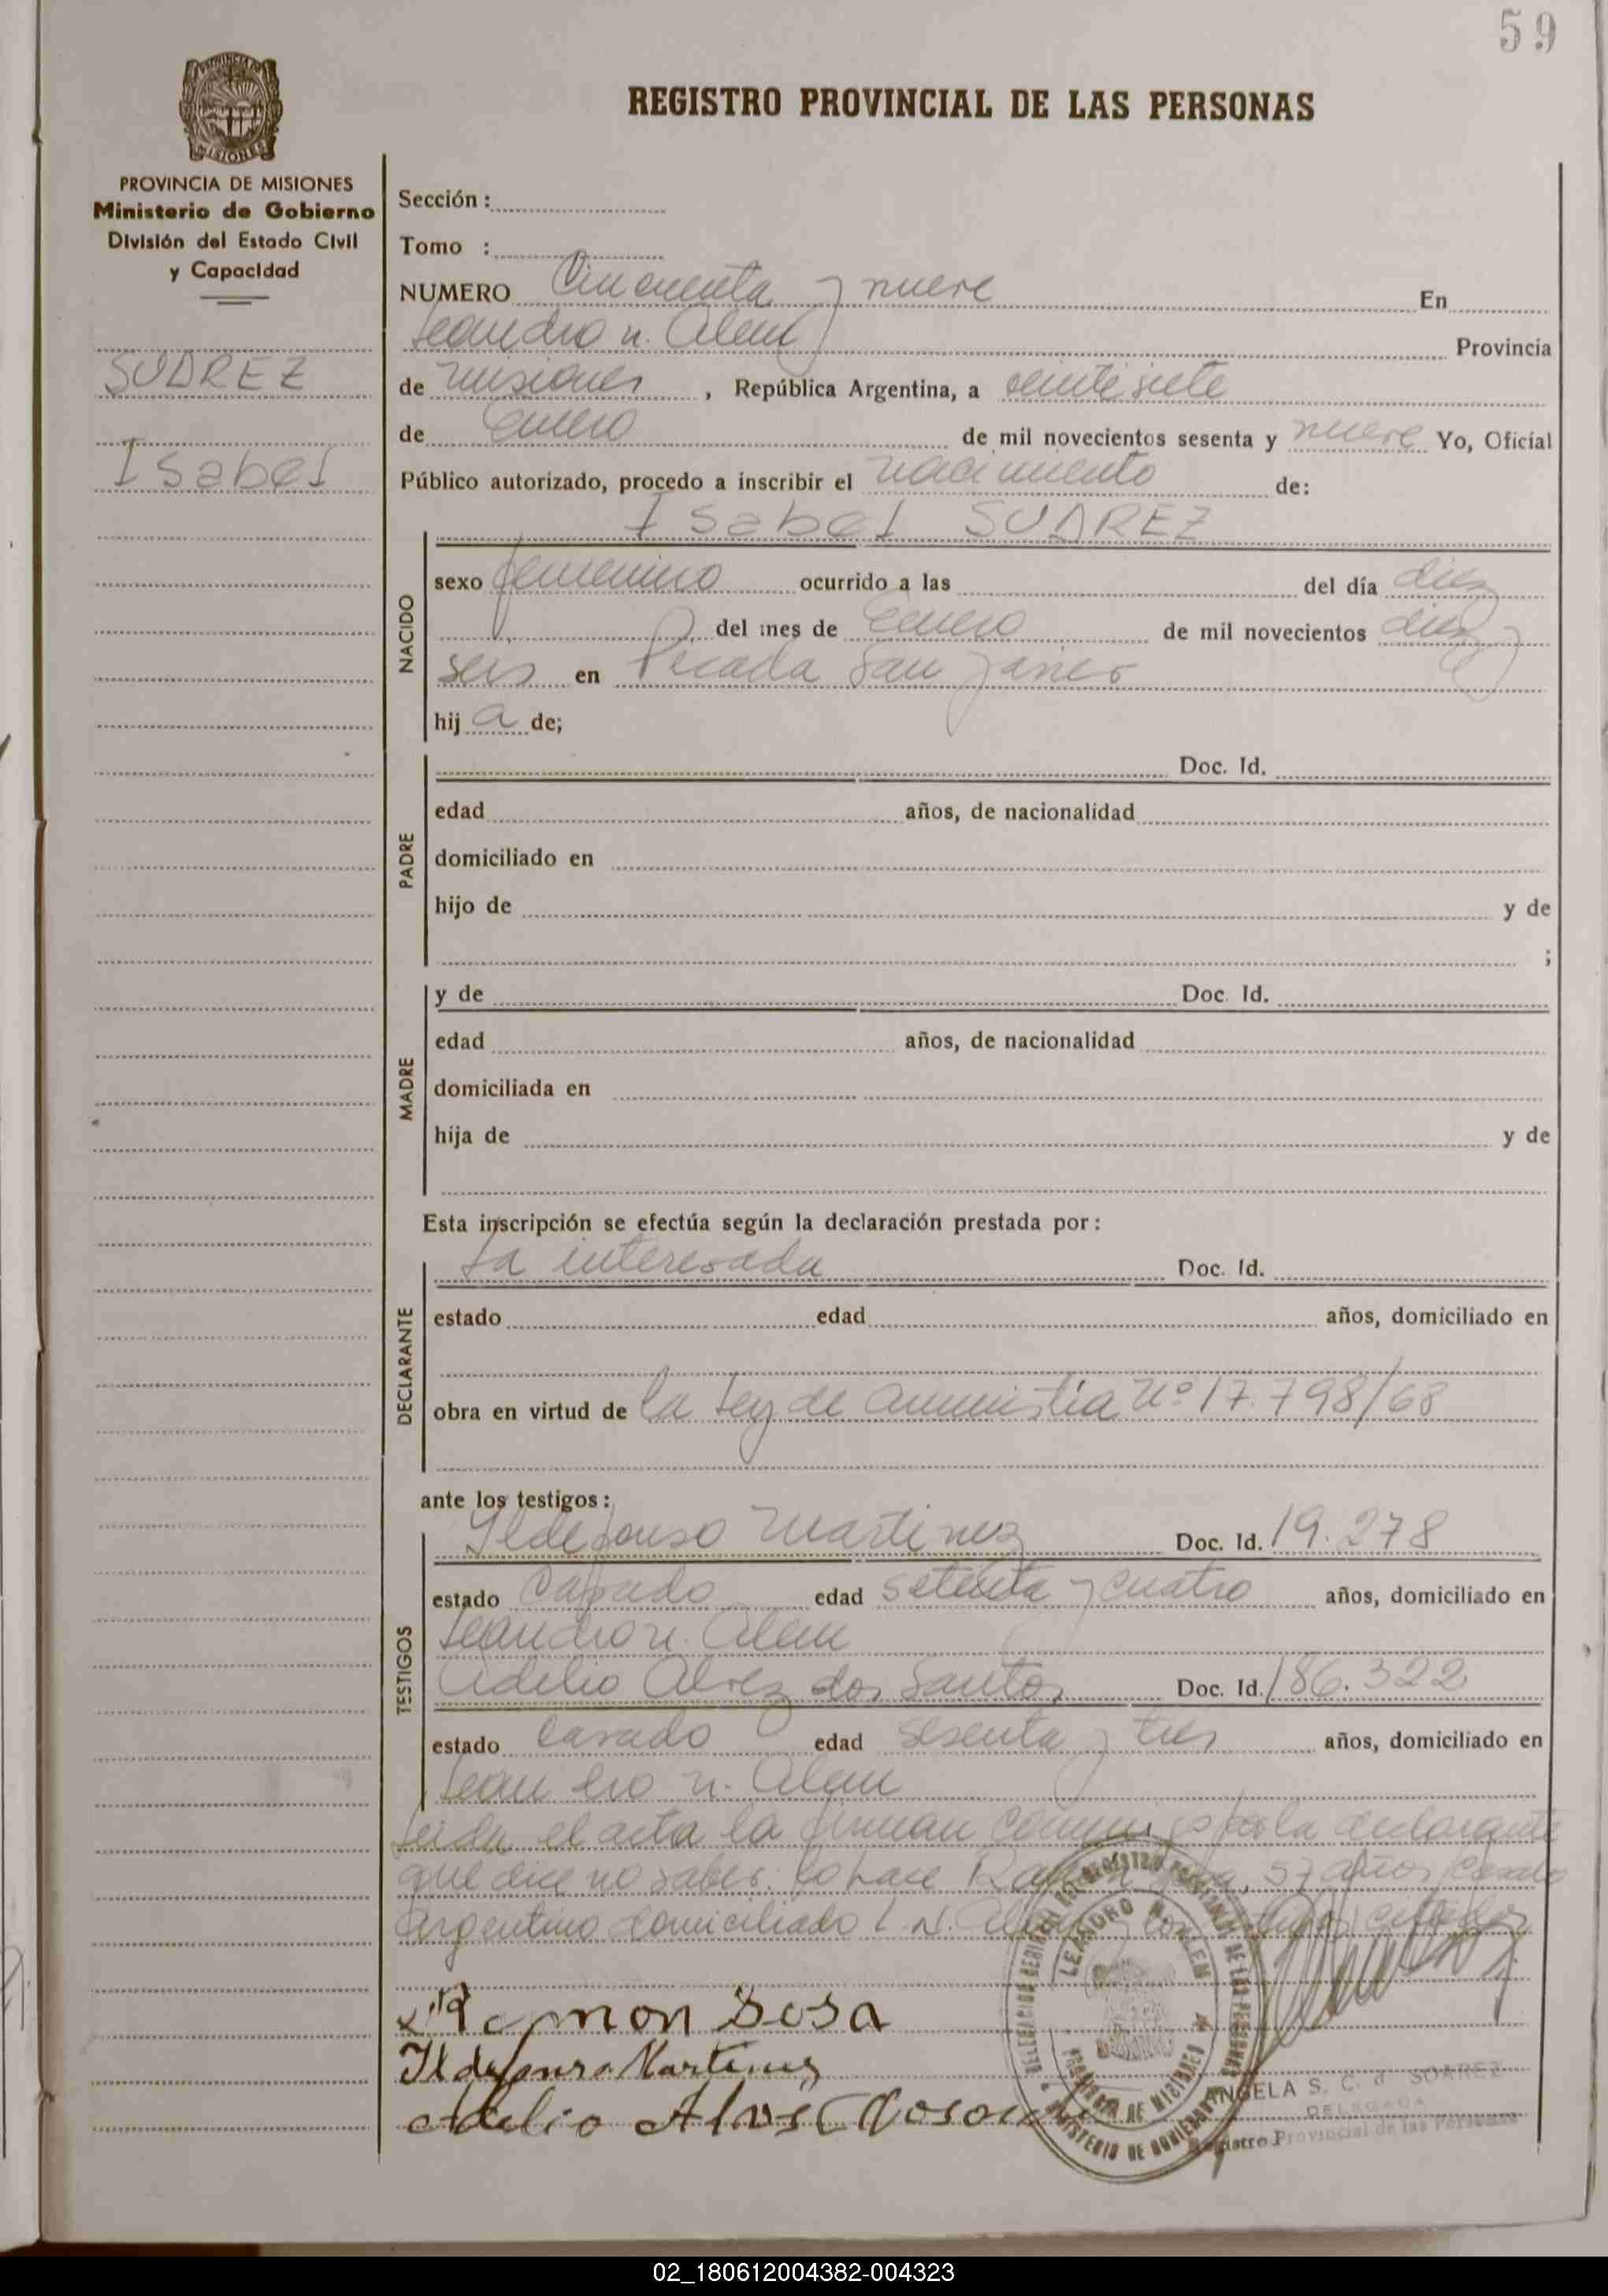 59
PROVINCIA DE
MISIONES
REGISTRO PROVINCIAL DE LAS PERSONAS
PROVINCIA DE MISIONES
Ministerio de Gobierno
División del Estado Civil
y Capacidad
SUAREZ
Isabel
Sección :
Tomo :
NUMERO Cincuenta y nueve En
Leandro N. Alem Provincia
de Misiones , República Argentina, a veintisiete
de Enero de mil novecientos sesenta y nueve Yo, Oficial
Público autorizado, procedo a inscribir el nacimiento de:
Isabel SUAREZ
NACIDO
sexo femenino ocurrido a las del día diez
del mes de Enero de mil novecientos diez y
seis en Picada San Javier
hij a de;
PADRE
Doc. Id.
edad años, de nacionalidad
domiciliado en
hijo de y de
;
MADRE
y de Doc. Id.
edad años, de nacionalidad
domiciliada en
hija de y de
Esta inscripción se efectúa según la declaración prestada por :
DECLARANTE
La interesada Doc. Id.
estado edad años, domiciliado en
obra en virtud de la Ley de amnistia Nº 17.798/68
ante los testigos :
TESTIGOS
Ildefonso Martinez Doc. Id. 19.278
estado Casado edad setenta y cuatro años, domiciliado en
Leandro N. Alem
Adelio Alvez dos Santos Doc. Id. 186.322
estado Casado edad sesenta y tres años, domiciliado en
Leandro N. Alem
Leida el acta la firman conmigo por la declarante
que dice no saber. lo hace Ramon Sosa, 57 años, Casado
argentino domiciliado L. N. Alem y los testigos citados
Ramon Sosa
Ildefonso Martinez
Adelio Alves
LEANDRO N. ALEM
PROVINCIA DE MISIONES
ANGELA S. C. d SUAREZ
DELEGADA
Registro Provincial de las Personas
02_180612004382-004323